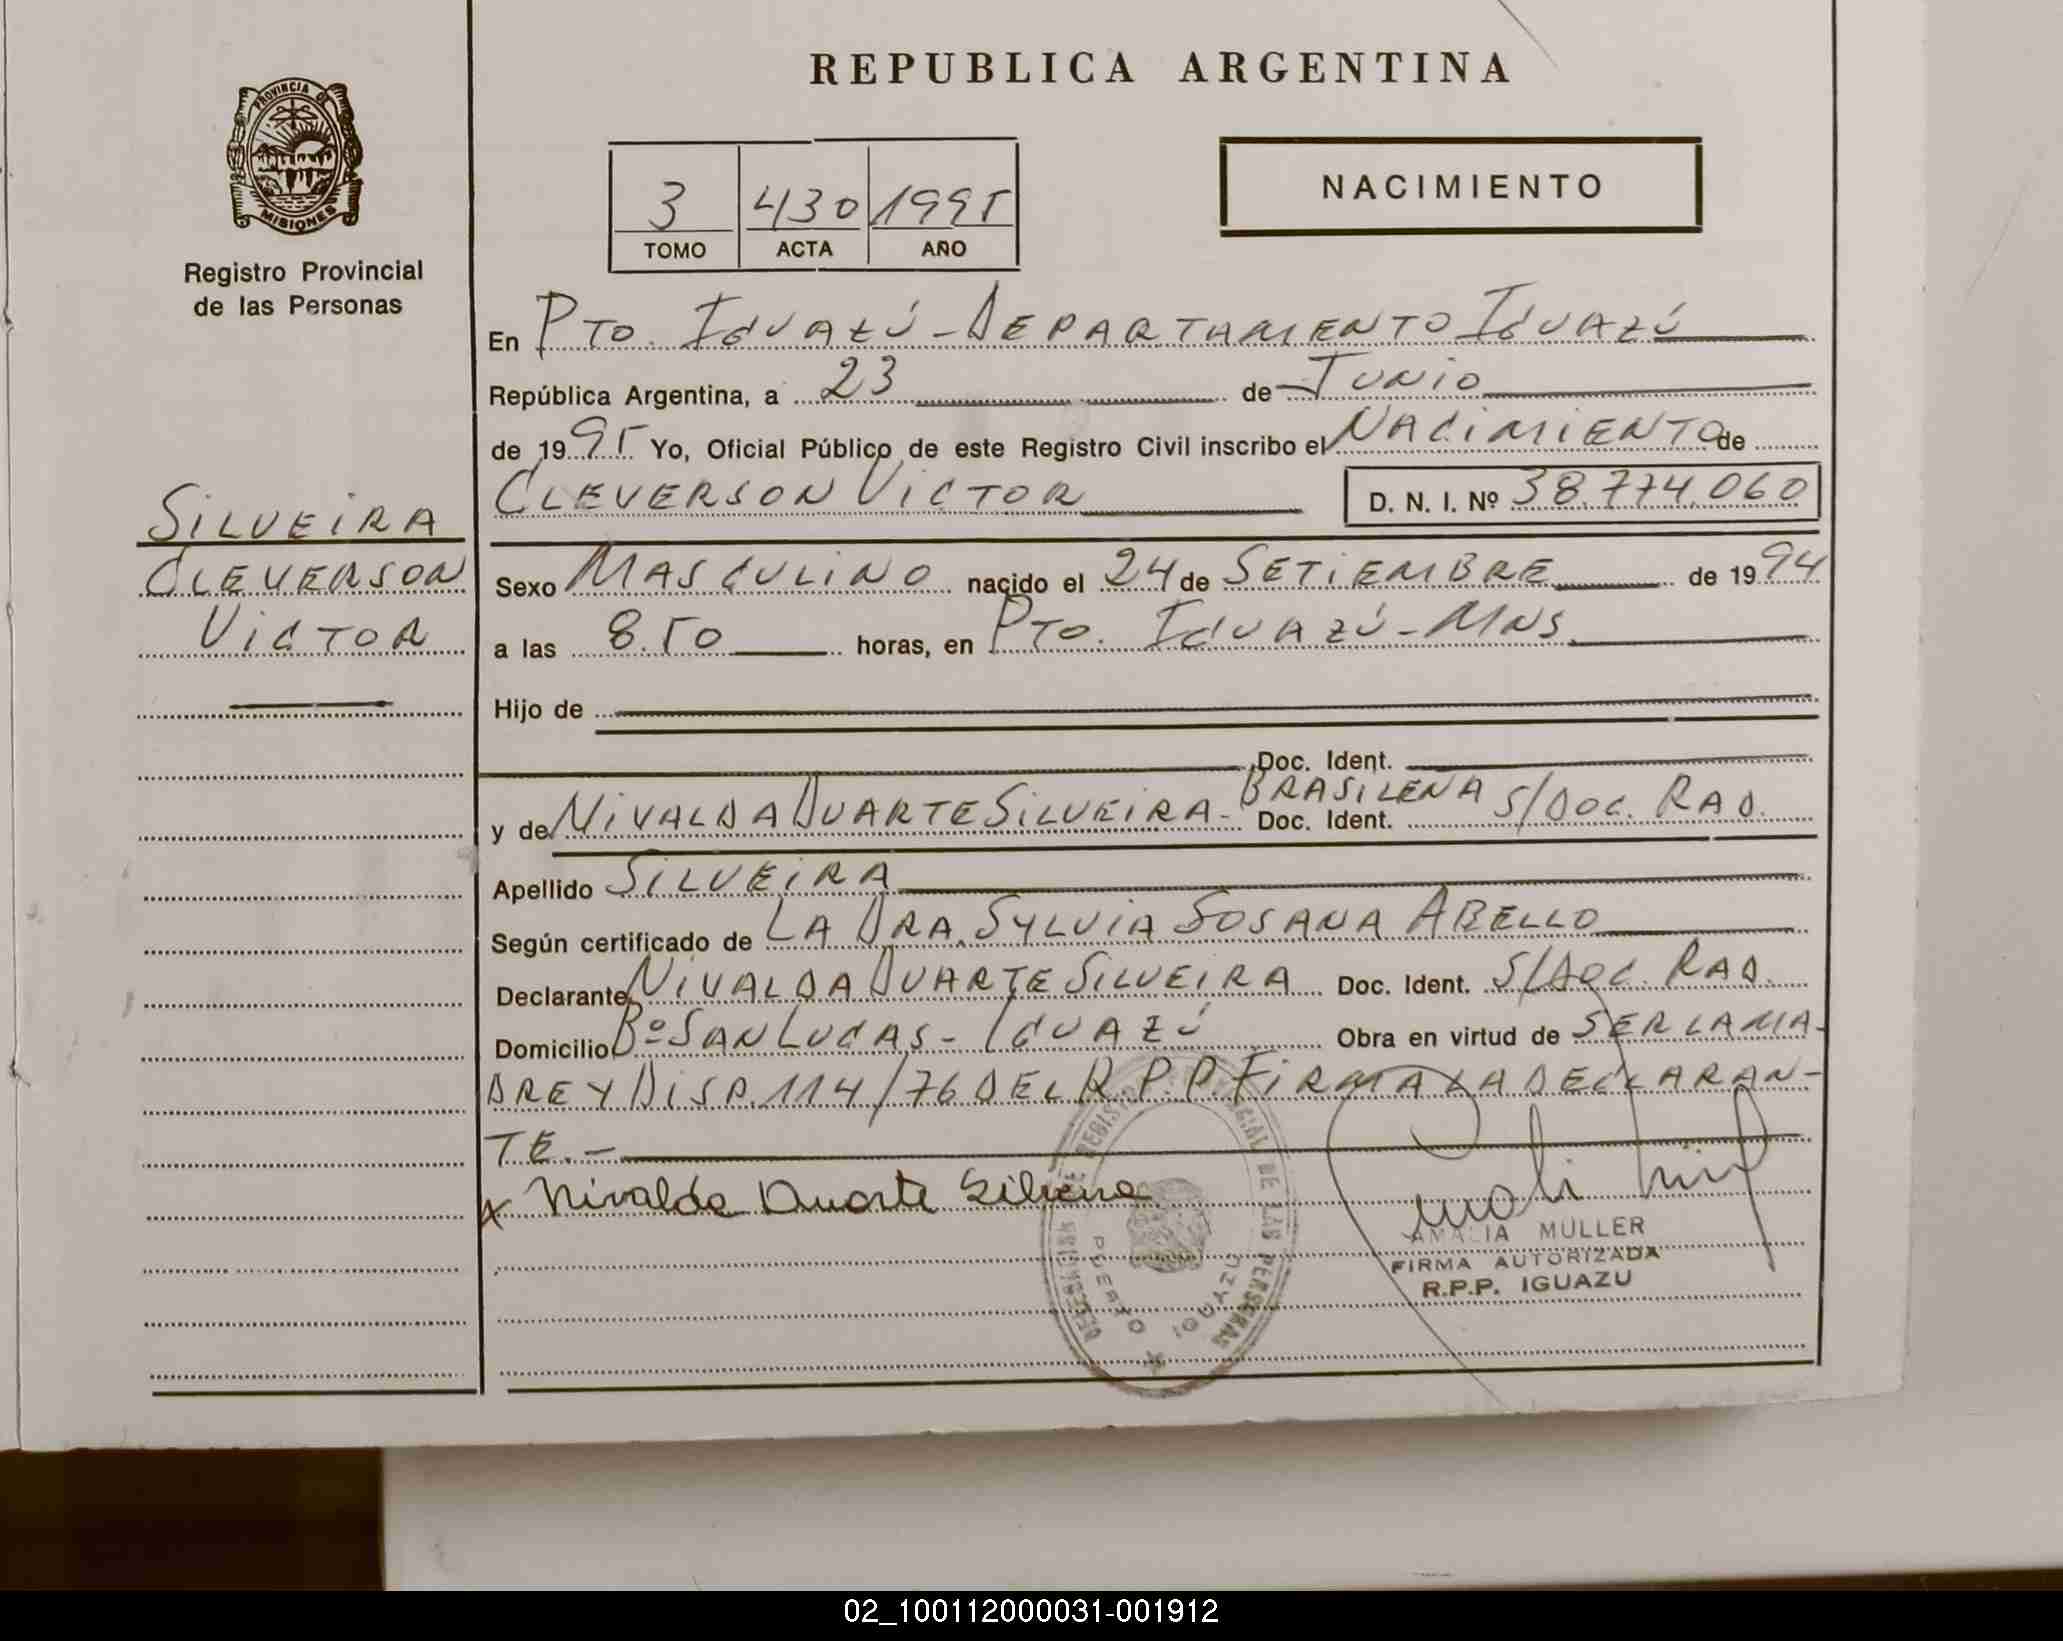 PROVINCIA DE
MISIONES
Registro Provincial
de las Personas
SILVEIRA
CLEVERSON
VICTOR
REPUBLICA ARGENTINA
3 430 1995
TOMO ACTA AÑO
NACIMIENTO
En PTO. IGUAZÚ - DEPARTAMENTO IGUAZÚ
República Argentina, a 23 de JUNIO
de 1995 Yo, Oficial Público de este Registro Civil inscribo el NACIMIENTO de
CLEVERSON VICTOR D. N. I. Nº 38.774.060
Sexo MASCULINO nacido el 24 de SETIEMBRE de 1994
a las 8.50 horas, en PTO. IGUAZÚ - MNS.
Hijo de
Doc. Ident.
y de NIVALDA DUARTE SILVEIRA - BRASILEÑA Doc. Ident. S/DOC. RAD.
Apellido SILVEIRA
Según certificado de LA DRA. SYLVIA SOSANA ABELLO
Declarante NIVALDA DUARTE SILVEIRA Doc. Ident. S/DOC. RAD.
Domicilio Bº SAN LUCAS - IGUAZÚ Obra en virtud de SER LA MA-
DRE Y DISP. 114/76 DEL R.P.P. FIRMA LA DECLARAN-
TE. -
x Nivalda Duarte Silveira
REGISTRO PROVINCIAL DE LAS PERSONAS
PUERTO IGUAZU
AMALIA MULLER
FIRMA AUTORIZADA
R.P.P. IGUAZU
02_100112000031-001912